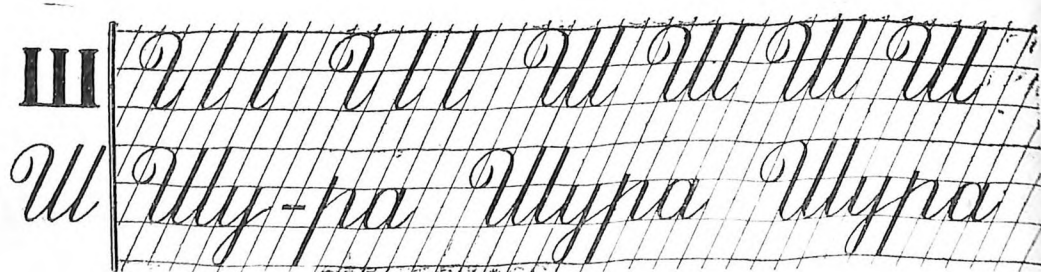 Ш Ш Ш Ш Ш Ш Ш
Ш Шу-ра Шура Шура